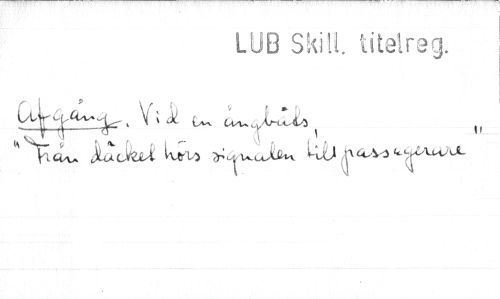 LUB Skill. titelreg.
Afgång. Vid en ångbåts,
"Från däcket hörs signalen till passagerare"